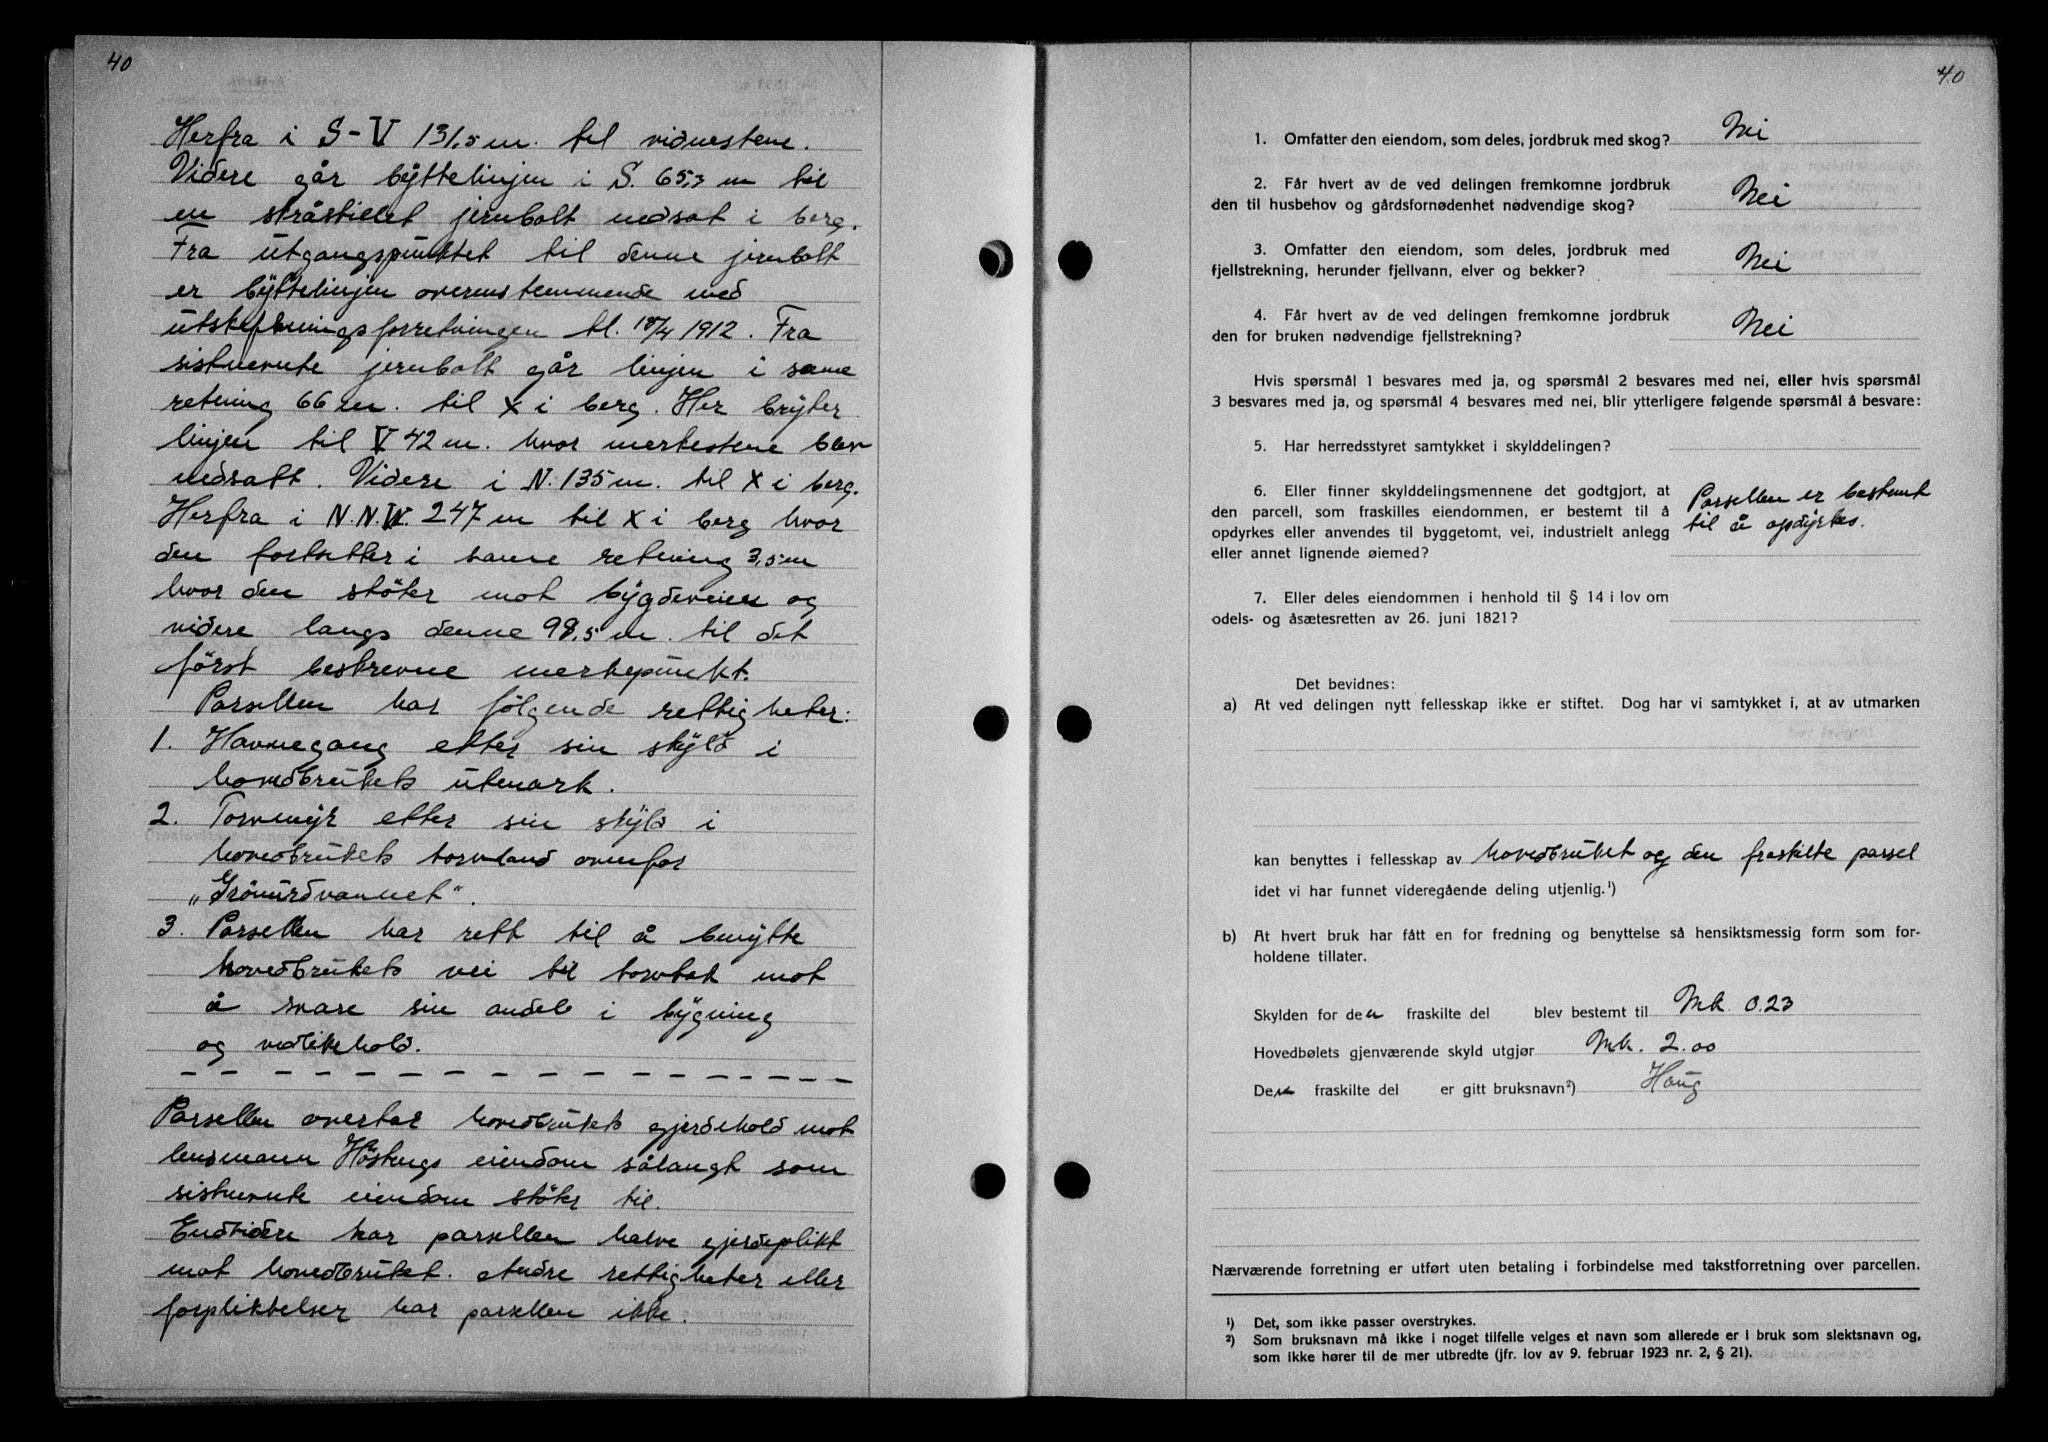 40
Herfra i S-V 131,5 m. til vidnestene.
Videre går byttelinjen i S. 65,3 m til
en stråstillet jernbolt nedsat i berg.
Fra utgangspunktet til denne jernbolt
er byttelinjen overensstemmende med
utskiftningsforretningen til. 18/4 1912. Fra
sistnevnte jernbolt går linjen i same
retning 66 m. til X i berg. Her bryter
linjen til V 42 m. hvor merkestene blev
nedsatt. Videre i N. 135 m. til X i berg.
Herfra i N.N.V. 247 m til X i berg hvor
den fortsetter i same retning 3,5 m
hvor den støter mot bygdeveien og
videre langs denne 98,5 m. til det
først beskrevne merkepunkt.
Parsellen har følgende rettigheter:
1. Havnegang efter sin skyld i
hovedbrukets utmark.
2. Torvmyr efter sin skyld i
hovedbrukets torvland ovenfor
„Grönurdvannet".
3. Parsellen har rett til å benytte
hovedbrukets vei til torvtak mot
å svare sin andel i bygning
og vedlikehold.
Parsellen overtar hovedbrukets gjerdehold mot
lensmann Høstengs eiendom sålangt som
sistnevnte eiendom støter til.
Endvidere har parsellen halve gjerdeplikt
mot hovedbruket. Andre rettigheter eller
forpliktelser har parsellen ikke.
40
1. Omfatter den eiendom, som deles, jordbruk med skog? Nei
2. Får hvert av de ved delingen fremkomne jordbruk
den til husbehov og gårdsfornødenhet nødvendige skog? Nei
3. Omfatter den eiendom, som deles, jordbruk med
fjellstrekning, herunder fjellvann, elver og bekker? Nei
4. Får hvert av de ved delingen fremkomne jordbruk
den for bruken nødvendige fjellstrekning? Nei
Hvis spørsmål 1 besvares med ja, og spørsmål 2 besvares med nei, eller hvis spørsmål
3 besvares med ja, og spørsmål 4 besvares med nei, blir ytterligere følgende spørsmål å besvare:
5. Har herredsstyret samtykket i skylddelingen?
6. Eller finner skylddelingsmennene det godtgjort, at
den parcell, som fraskilles eiendommen, er bestemt til å
opdyrkes eller anvendes til byggetomt, vei, industrielt anlegg
eller annet lignende øiemed?
Parsellen er bestemt
til å opdyrkes.
7. Eller deles eiendommen i henhold til § 14 i lov om
odels- og åsætesretten av 26. juni 1821?
Det bevidnes:
a) At ved delingen nytt fellesskap ikke er stiftet. Dog har vi samtykket i, at av utmarken
kan benyttes i fellesskap av hovedbruket og den fraskilte parsel
idet vi har funnet videregående deling utjenlig.¹)
b) At hvert bruk har fått en for fredning og benyttelse så hensiktsmessig form som for-
holdene tillater.
Skylden for den fraskilte del blev bestemt til Mk. 0.23
Hovedbølets gjenværende skyld utgjør Mk. 2.00
Den fraskilte del er gitt bruksnavn²) Haug
Nærværende forretning er utført uten betaling i forbindelse med takstforretning over parcellen.
¹) Det, som ikke passer overstrykes.
²) Som bruksnavn må ikke i noget tilfelle velges et navn som allerede er i bruk som slektsnavn og,
som ikke hører til de mer utbredte (jfr. lov av 9. februar 1923 nr. 2, § 21).